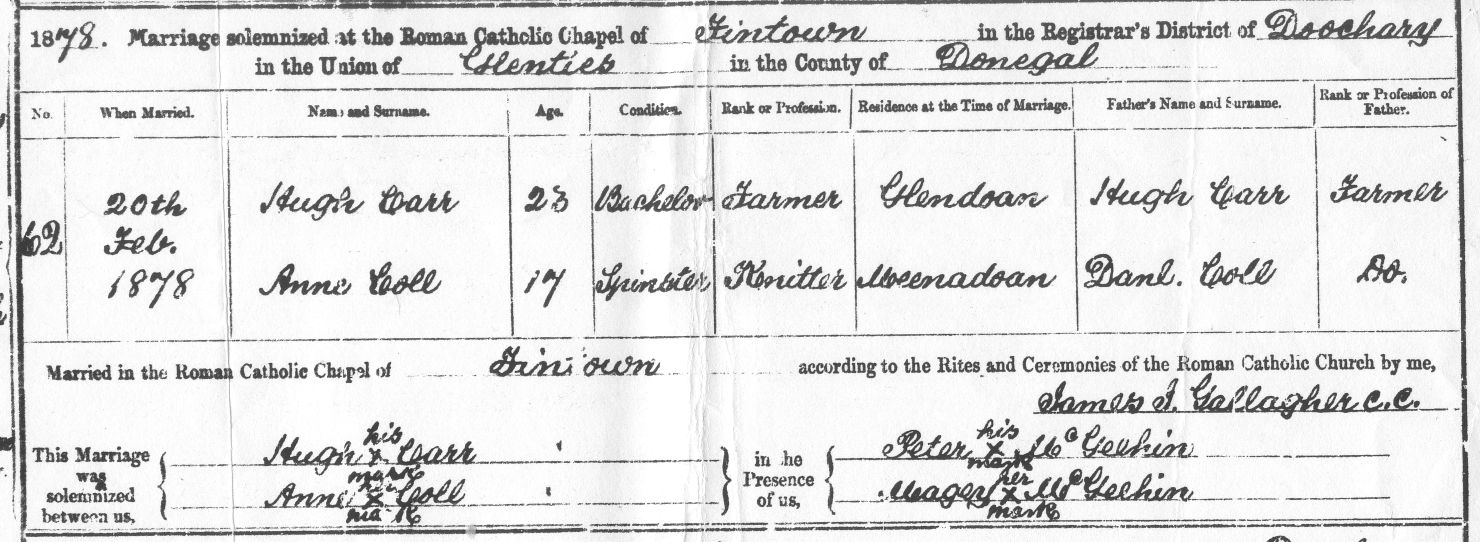 1878. Marriage solemnized at the Roman Catholic Chapel of Fintown in the Registrar's District of Doochary
in the Union of Glenties in the County of Donegal
No. When Married. Name and Surname. Age. Condition. Rank or Profession. Residence at the Time of Marriage. Father's Name and Surname. Rank or Profession of Father.
62 20th Feb. 1878 Hugh Carr 23 Bachelor Farmer Glendoan Hugh Carr Farmer
Anne Coll 17 Spinster Knitter Meenadoan Danl. Coll Do.
Married in the Roman Catholic Chapel of Fintown according to the Rites and Ceremonies of the Roman Catholic Church by me,
James J. Gallagher C.C.
This Marriage was solemnized between us,
Hugh his x mark Carr
Anne her x mark Coll
in the Presence of us,
Peter his x mark McGeehin
Magey her x mark McGeehin